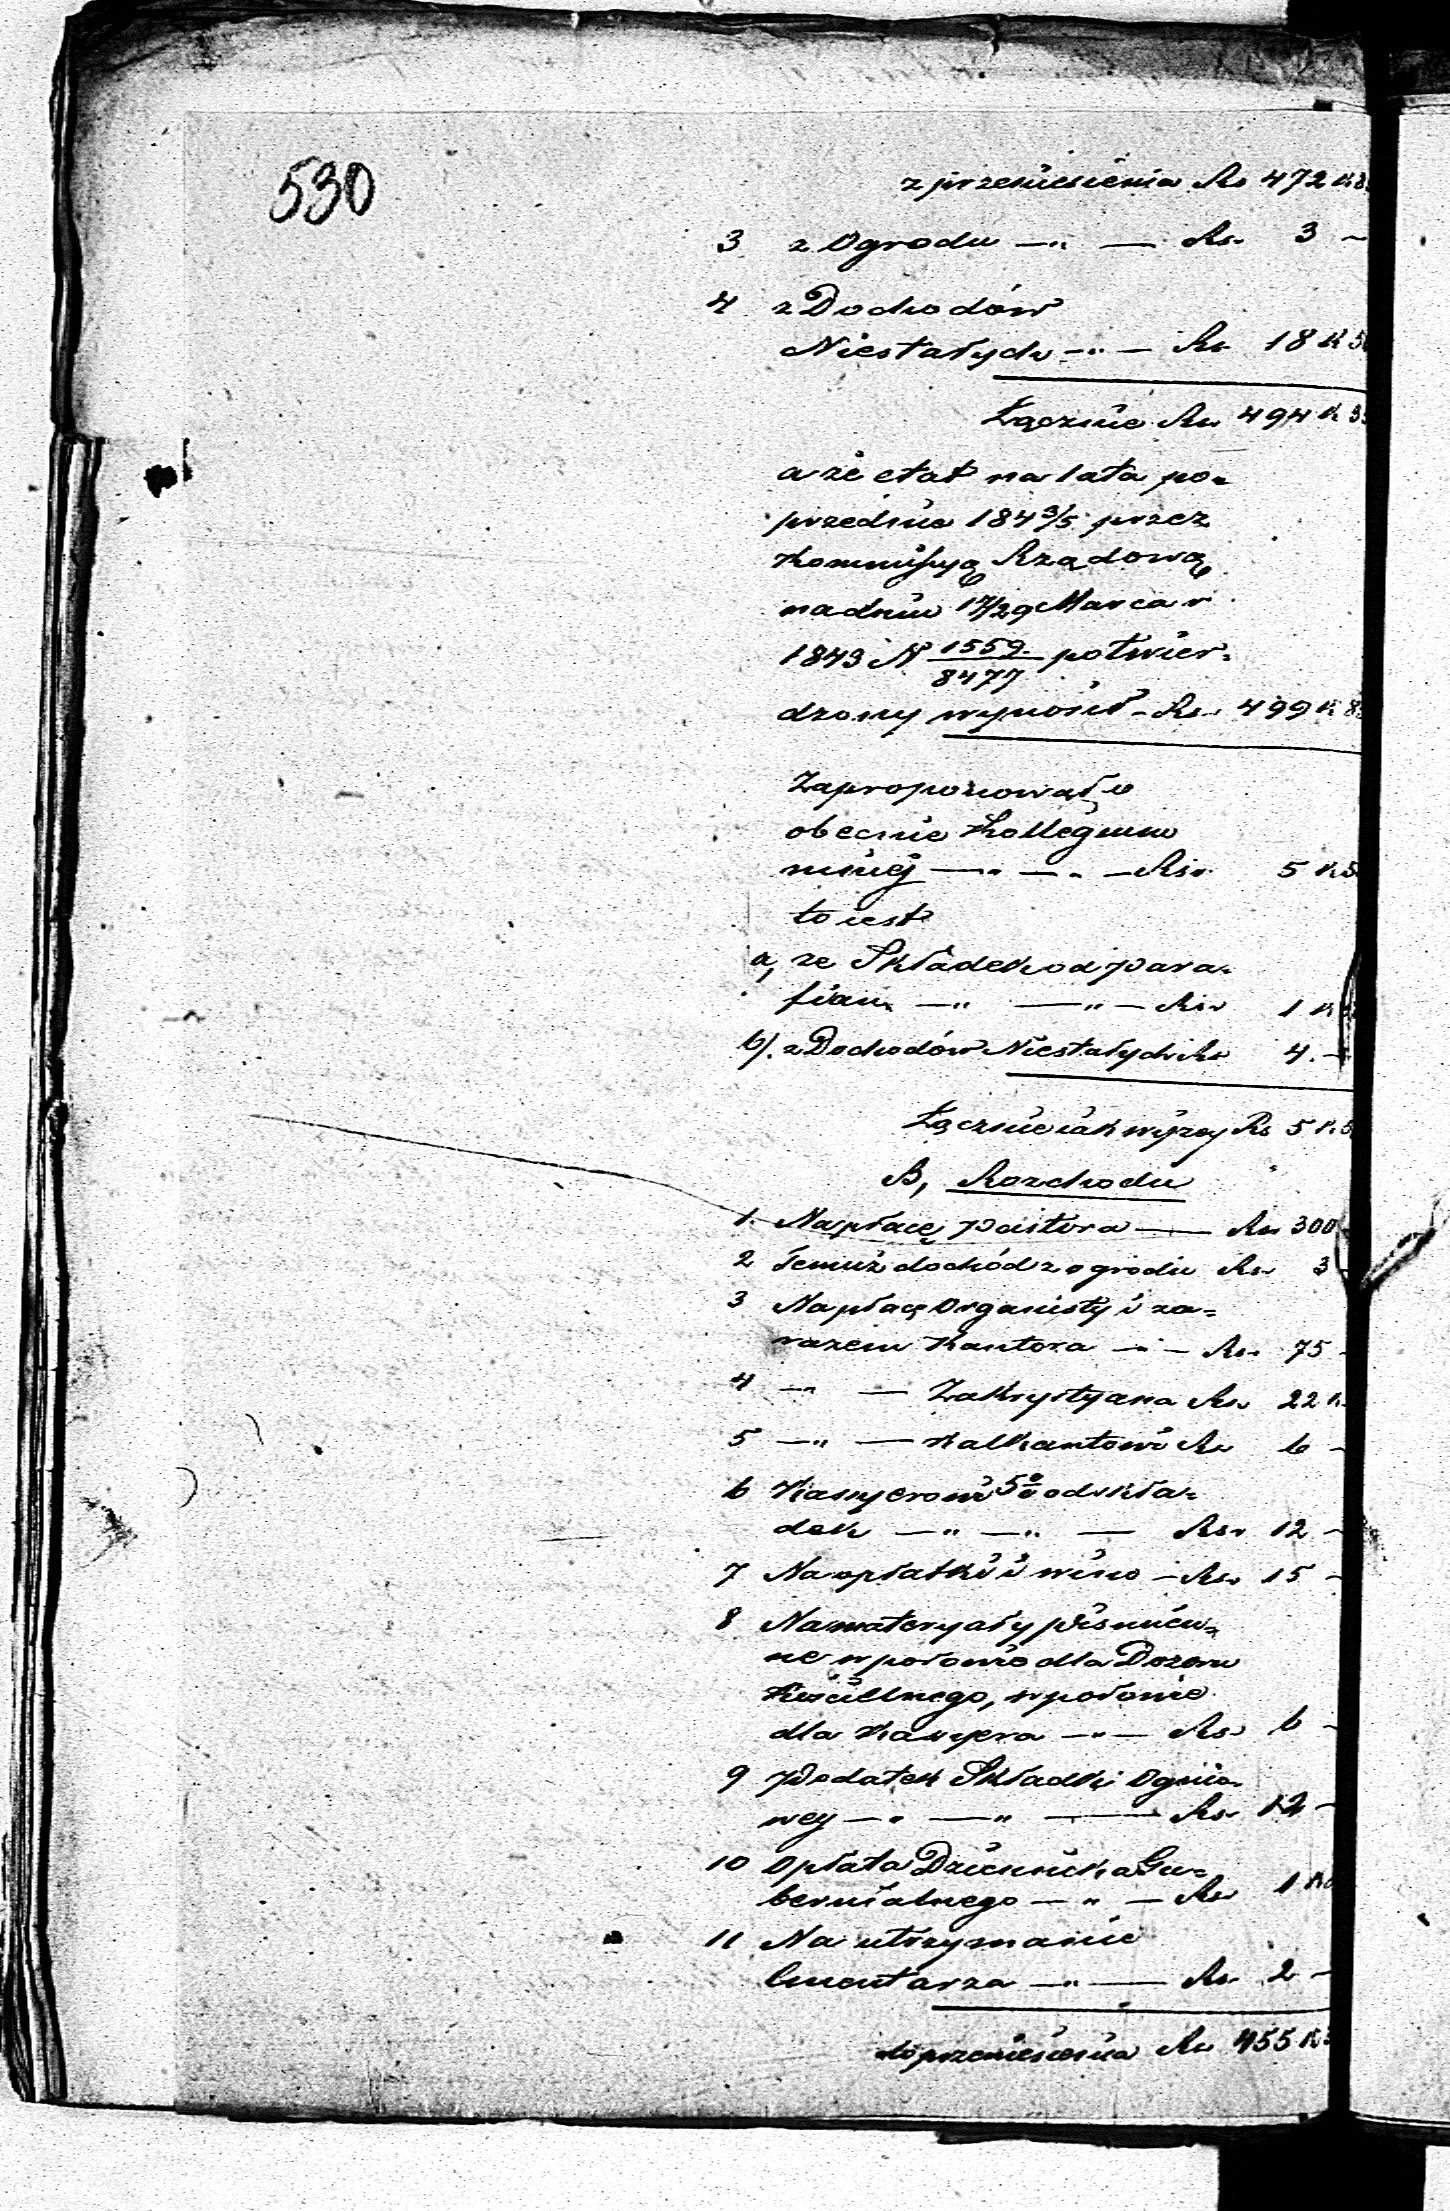 530
z przeniesienia Rs 472 k 8
3 z Ogrodu —„— Rs. 3 —
4 z Dochodów
Niestałych —„— Rs. 18 k 5
Łącznie Rs. 494 k 3
a że etat na lata po-
przednie 184 3/5 przez
Kommissyą Rządową
na dniu 17/29 Marca r.
1843 N 1559/8477 potwier-
dzony wynosił - Rs. 499 k 8
Zaproponowało
obecnie Kollegium
mniej —„—„— Rsr. 5 k 5
to iest
a, ze Składek od para-
fian —„—„— Rsr 1 k
b). z Dochodów Niestałych Rs 4. —
Łącznie iak wyżey Rs 5 k 5
B, Rozchodu
1. Na płacę Pastora — Rs 300
2 Temuż dochód z ogrodu Rs. 3 —
3 Na płacę Organisty i za-
razem Kantora —„— Rs. 75 -
4 —„— Zakrystyana Rs. 22 k
5 —„— Kalkantowi Rs 6 -
6 Kassyerowi 5% od skła-
dek —„—„— Rsr 12 -
7 Na opłatki i wino - Rs. 15 -
8 Na materyały piśmien-
ne w połowie dla Dozoru
Kościelnego, w połowie
dla Kassyera —„— Rs. 6 -
9 Podatek Składki Ognio-
wey —„—„— Rs. 12 -
10 Opłata Dziennika Gu-
bernialnego —„— Rs 1 k
11 Na utrzymanie
Cmentarza —„— Rs. 2 —
do przeniesienia Rs 455 k